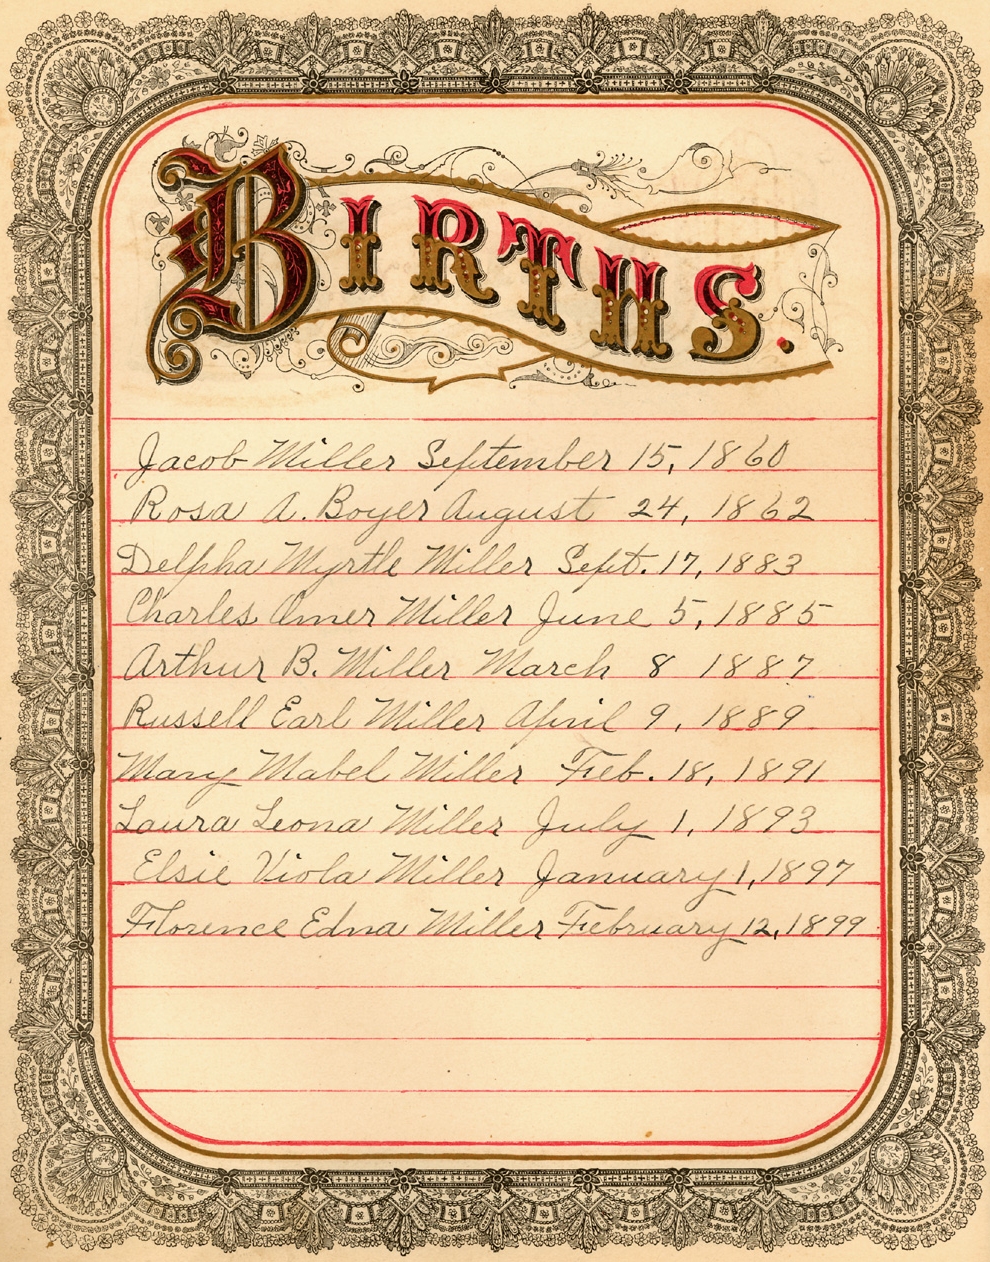 BIRTHS.
Jacob Miller September 15, 1860
Rosa A. Boyer August 24, 1862
Delpha Myrtle Miller Sept. 17, 1883
Charles Omer Miller June 5, 1885
Arthur B. Miller March 8 1887
Russell Earl Miller April 9, 1889
Mary Mabel Miller Feb. 18, 1891
Laura Leona Miller July 1, 1893
Elsie Viola Miller January 1, 1897
Florence Edna Miller February 12, 1899